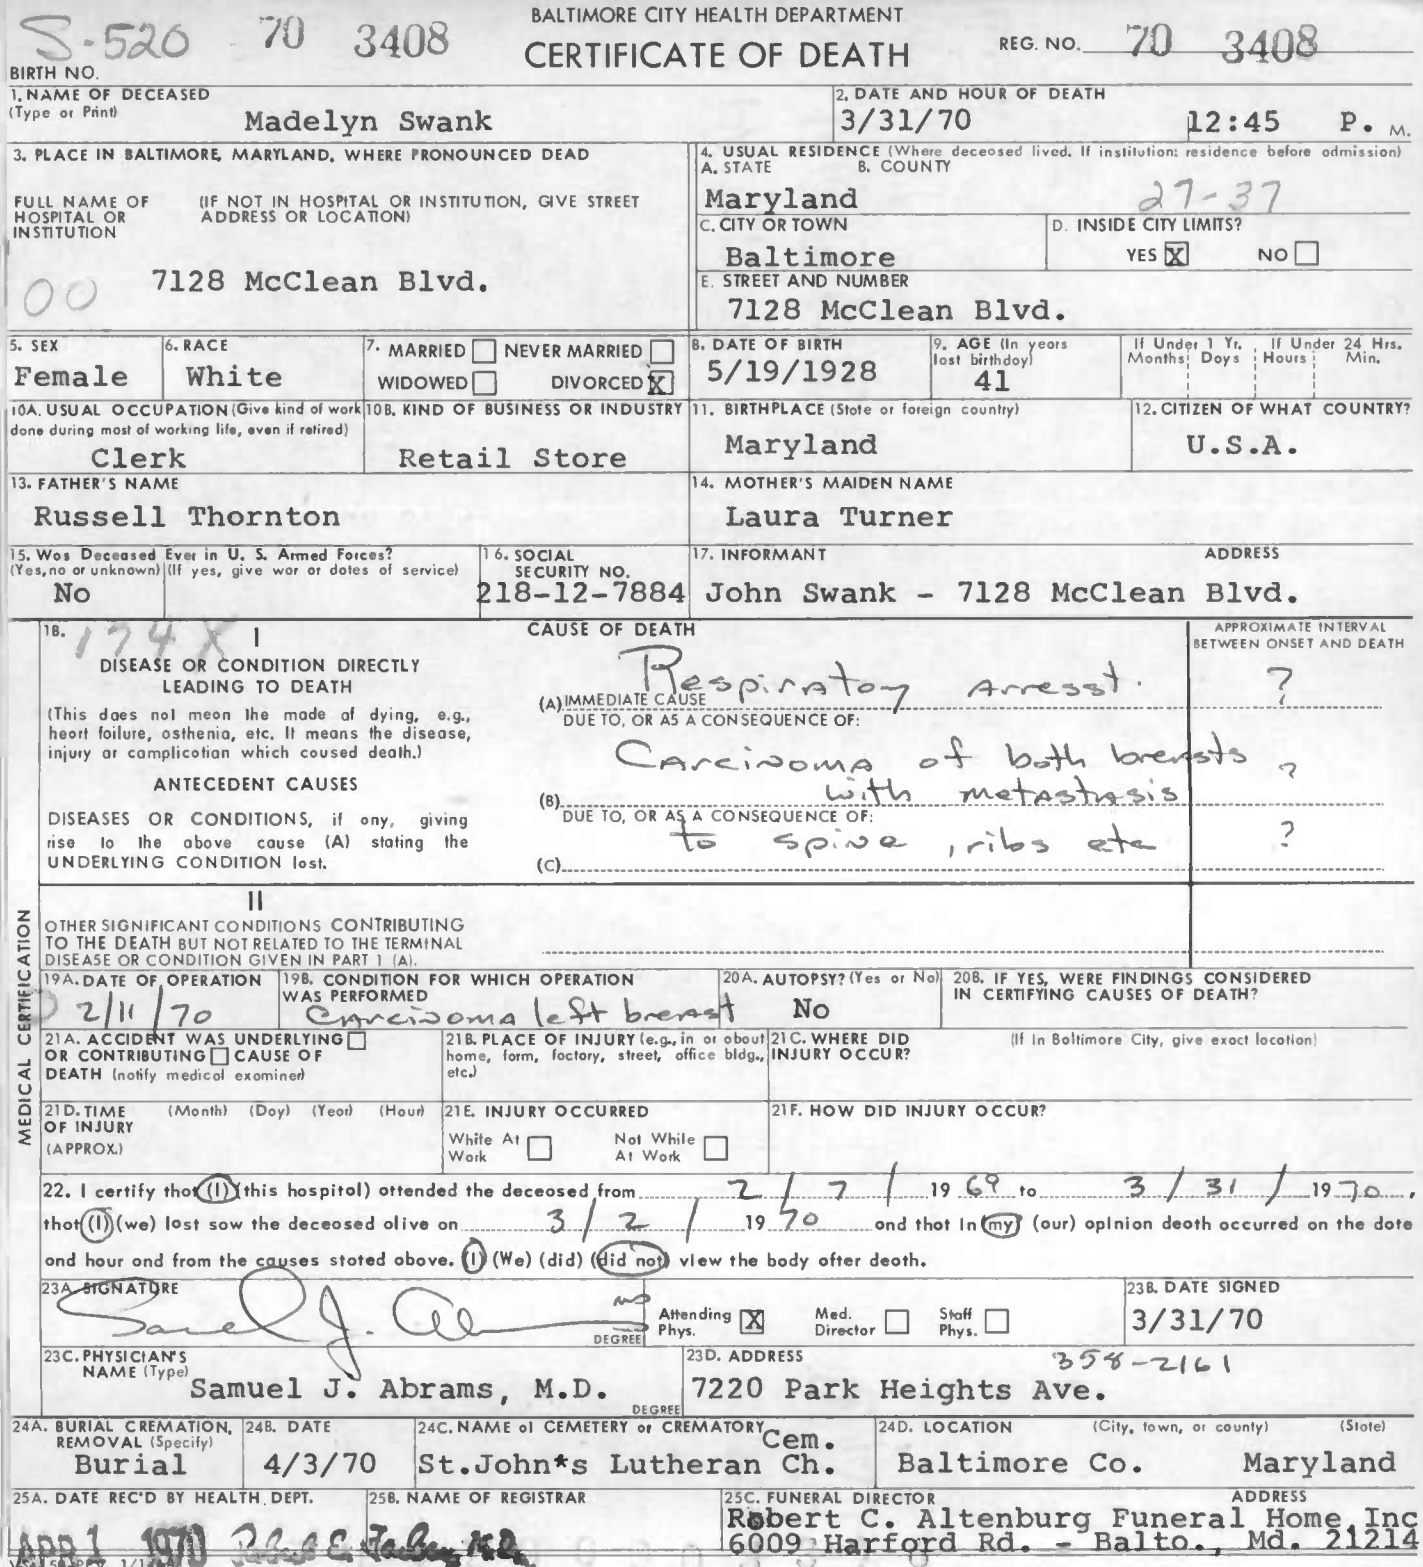 BALTIMORE CITY HEALTH DEPARTMENT
S-520 70 3408 CERTIFICATE OF DEATH REG. NO. 70 3408
BIRTH NO.
1. NAME OF DECEASED
(Type or Print) Madelyn Swank
2. DATE AND HOUR OF DEATH
3/31/70 12:45 P. M.
3. PLACE IN BALTIMORE, MARYLAND, WHERE PRONOUNCED DEAD
FULL NAME OF HOSPITAL OR INSTITUTION
(IF NOT IN HOSPITAL OR INSTITUTION, GIVE STREET ADDRESS OR LOCATION)
7128 McClean Blvd.
00
4. USUAL RESIDENCE (Where deceased lived. If institution: residence before admission)
A. STATE B. COUNTY
Maryland 27-37
C. CITY OR TOWN D. INSIDE CITY LIMITS?
Baltimore YES X NO
E. STREET AND NUMBER
7128 McClean Blvd.
5. SEX
Female
6. RACE
White
7. MARRIED NEVER MARRIED
WIDOWED DIVORCED X
8. DATE OF BIRTH
5/19/1928
9. AGE (In years last birthday)
41
If Under 1 Yr. If Under 24 Hrs.
Months Days Hours Min.
10A. USUAL OCCUPATION (Give kind of work done during most of working life, even if retired)
Clerk
10B. KIND OF BUSINESS OR INDUSTRY
Retail Store
11. BIRTHPLACE (State or foreign country)
Maryland
12. CITIZEN OF WHAT COUNTRY?
U.S.A.
13. FATHER'S NAME
Russell Thornton
14. MOTHER'S MAIDEN NAME
Laura Turner
15. Was Deceased Ever in U. S. Armed Forces?
(Yes, no or unknown) (If yes, give war or dates of service)
No
16. SOCIAL SECURITY NO.
218-12-7884
17. INFORMANT ADDRESS
John Swank - 7128 McClean Blvd.
MEDICAL CERTIFICATION
18. 174X I
DISEASE OR CONDITION DIRECTLY
LEADING TO DEATH
(This does not mean the mode of dying, e.g.,
heart failure, asthenia, etc. It means the disease,
injury or complication which caused death.)
ANTECEDENT CAUSES
DISEASES OR CONDITIONS, if any, giving
rise to the above cause (A) stating the
UNDERLYING CONDITION last.
CAUSE OF DEATH
APPROXIMATE INTERVAL
BETWEEN ONSET AND DEATH
Respiratory Arresst. ?
(A) IMMEDIATE CAUSE
DUE TO, OR AS A CONSEQUENCE OF:
Carcinoma of both breasts ?
(B) with metastasis
DUE TO, OR AS A CONSEQUENCE OF:
to spine, ribs etc ?
(C)
II
OTHER SIGNIFICANT CONDITIONS CONTRIBUTING
TO THE DEATH BUT NOT RELATED TO THE TERMINAL
DISEASE OR CONDITION GIVEN IN PART 1 (A).
19A. DATE OF OPERATION
2/11/70
19B. CONDITION FOR WHICH OPERATION WAS PERFORMED
Carcinoma left breast
20A. AUTOPSY? (Yes or No)
No
20B. IF YES, WERE FINDINGS CONSIDERED
IN CERTIFYING CAUSES OF DEATH?
21A. ACCIDENT WAS UNDERLYING
OR CONTRIBUTING CAUSE OF
DEATH (notify medical examiner)
21B. PLACE OF INJURY (e.g., in or about
home, farm, factory, street, office bldg.,
etc.)
21C. WHERE DID INJURY OCCUR? (If in Baltimore City, give exact location)
21D. TIME OF INJURY (Month) (Day) (Year) (Hour)
(APPROX.)
21E. INJURY OCCURRED
While At Work Not While At Work
21F. HOW DID INJURY OCCUR?
22. I certify that (I) (this hospital) attended the deceased from 2/7/ 1969 to 3/31/ 1970,
that (I) (we) last saw the deceased alive on 3/2/ 1970 and that in (my) (our) opinion death occurred on the date
and hour and from the causes stated above. (I) (We) (did) (did not) view the body after death.
23A. SIGNATURE
Samuel J. MD
DEGREE
Attending Phys. X Med. Director Staff Phys.
23B. DATE SIGNED
3/31/70
23C. PHYSICIAN'S NAME (Type)
Samuel J. Abrams, M.D.
DEGREE
23D. ADDRESS 358-2161
7220 Park Heights Ave.
24A. BURIAL CREMATION, REMOVAL (Specify)
Burial
24B. DATE
4/3/70
24C. NAME of CEMETERY or CREMATORY Cem.
St.John*s Lutheran Ch.
24D. LOCATION (City, town, or county) (State)
Baltimore Co. Maryland
25A. DATE REC'D BY HEALTH DEPT.
APR 1 1970
25B. NAME OF REGISTRAR
Robert E. Farber, M.D.
25C. FUNERAL DIRECTOR ADDRESS
Robert C. Altenburg Funeral Home Inc
6009 Harford Rd. - Balto., Md. 21214